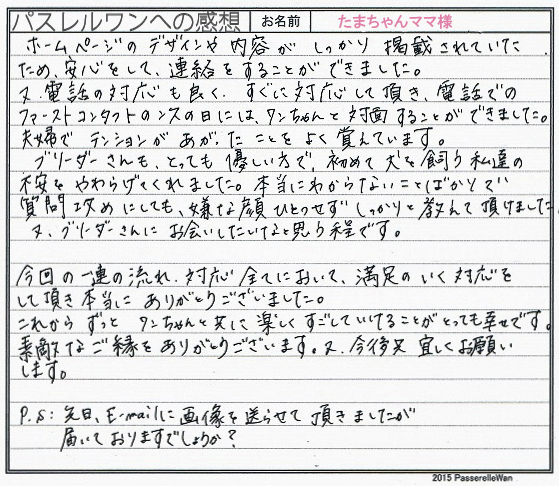 パスレルワンへの感想 お名前 たまちゃんママ様
ホームページのデザインや内容がしっかり掲載されていた
ため、安心をして、連絡をすることができました。
又、電話の対応も良く、すぐに対応して頂き、電話での
ファーストコンタクトの次の日には、ワンちゃんと対面することができました。
夫婦でテンションがあがったことをよく覚えています。
ブリーダーさんも、とっても優しい方で、初めて犬を飼う私達の
不安をやわらげてくれました。本当にわからないことばかりで
質問攻めにしても、嫌な顔ひとつせずしっかりと教えて頂けました
又、ブリーダーさんにお会いしたいなと思う程です。
今回の一連の流れ、対応全てにおいて、満足のいく対応を
して頂き本当にありがとうございました。
これからずっとワンちゃんと共に楽しくすごしていけることがとっても幸せです。
素敵なご縁をありがとうございます。又、今後共宜しくお願い
します。
P.S:先日、E-mailに画像を送らせて頂きましたが
届いておりますでしょうか?
2015 PasserelleWan